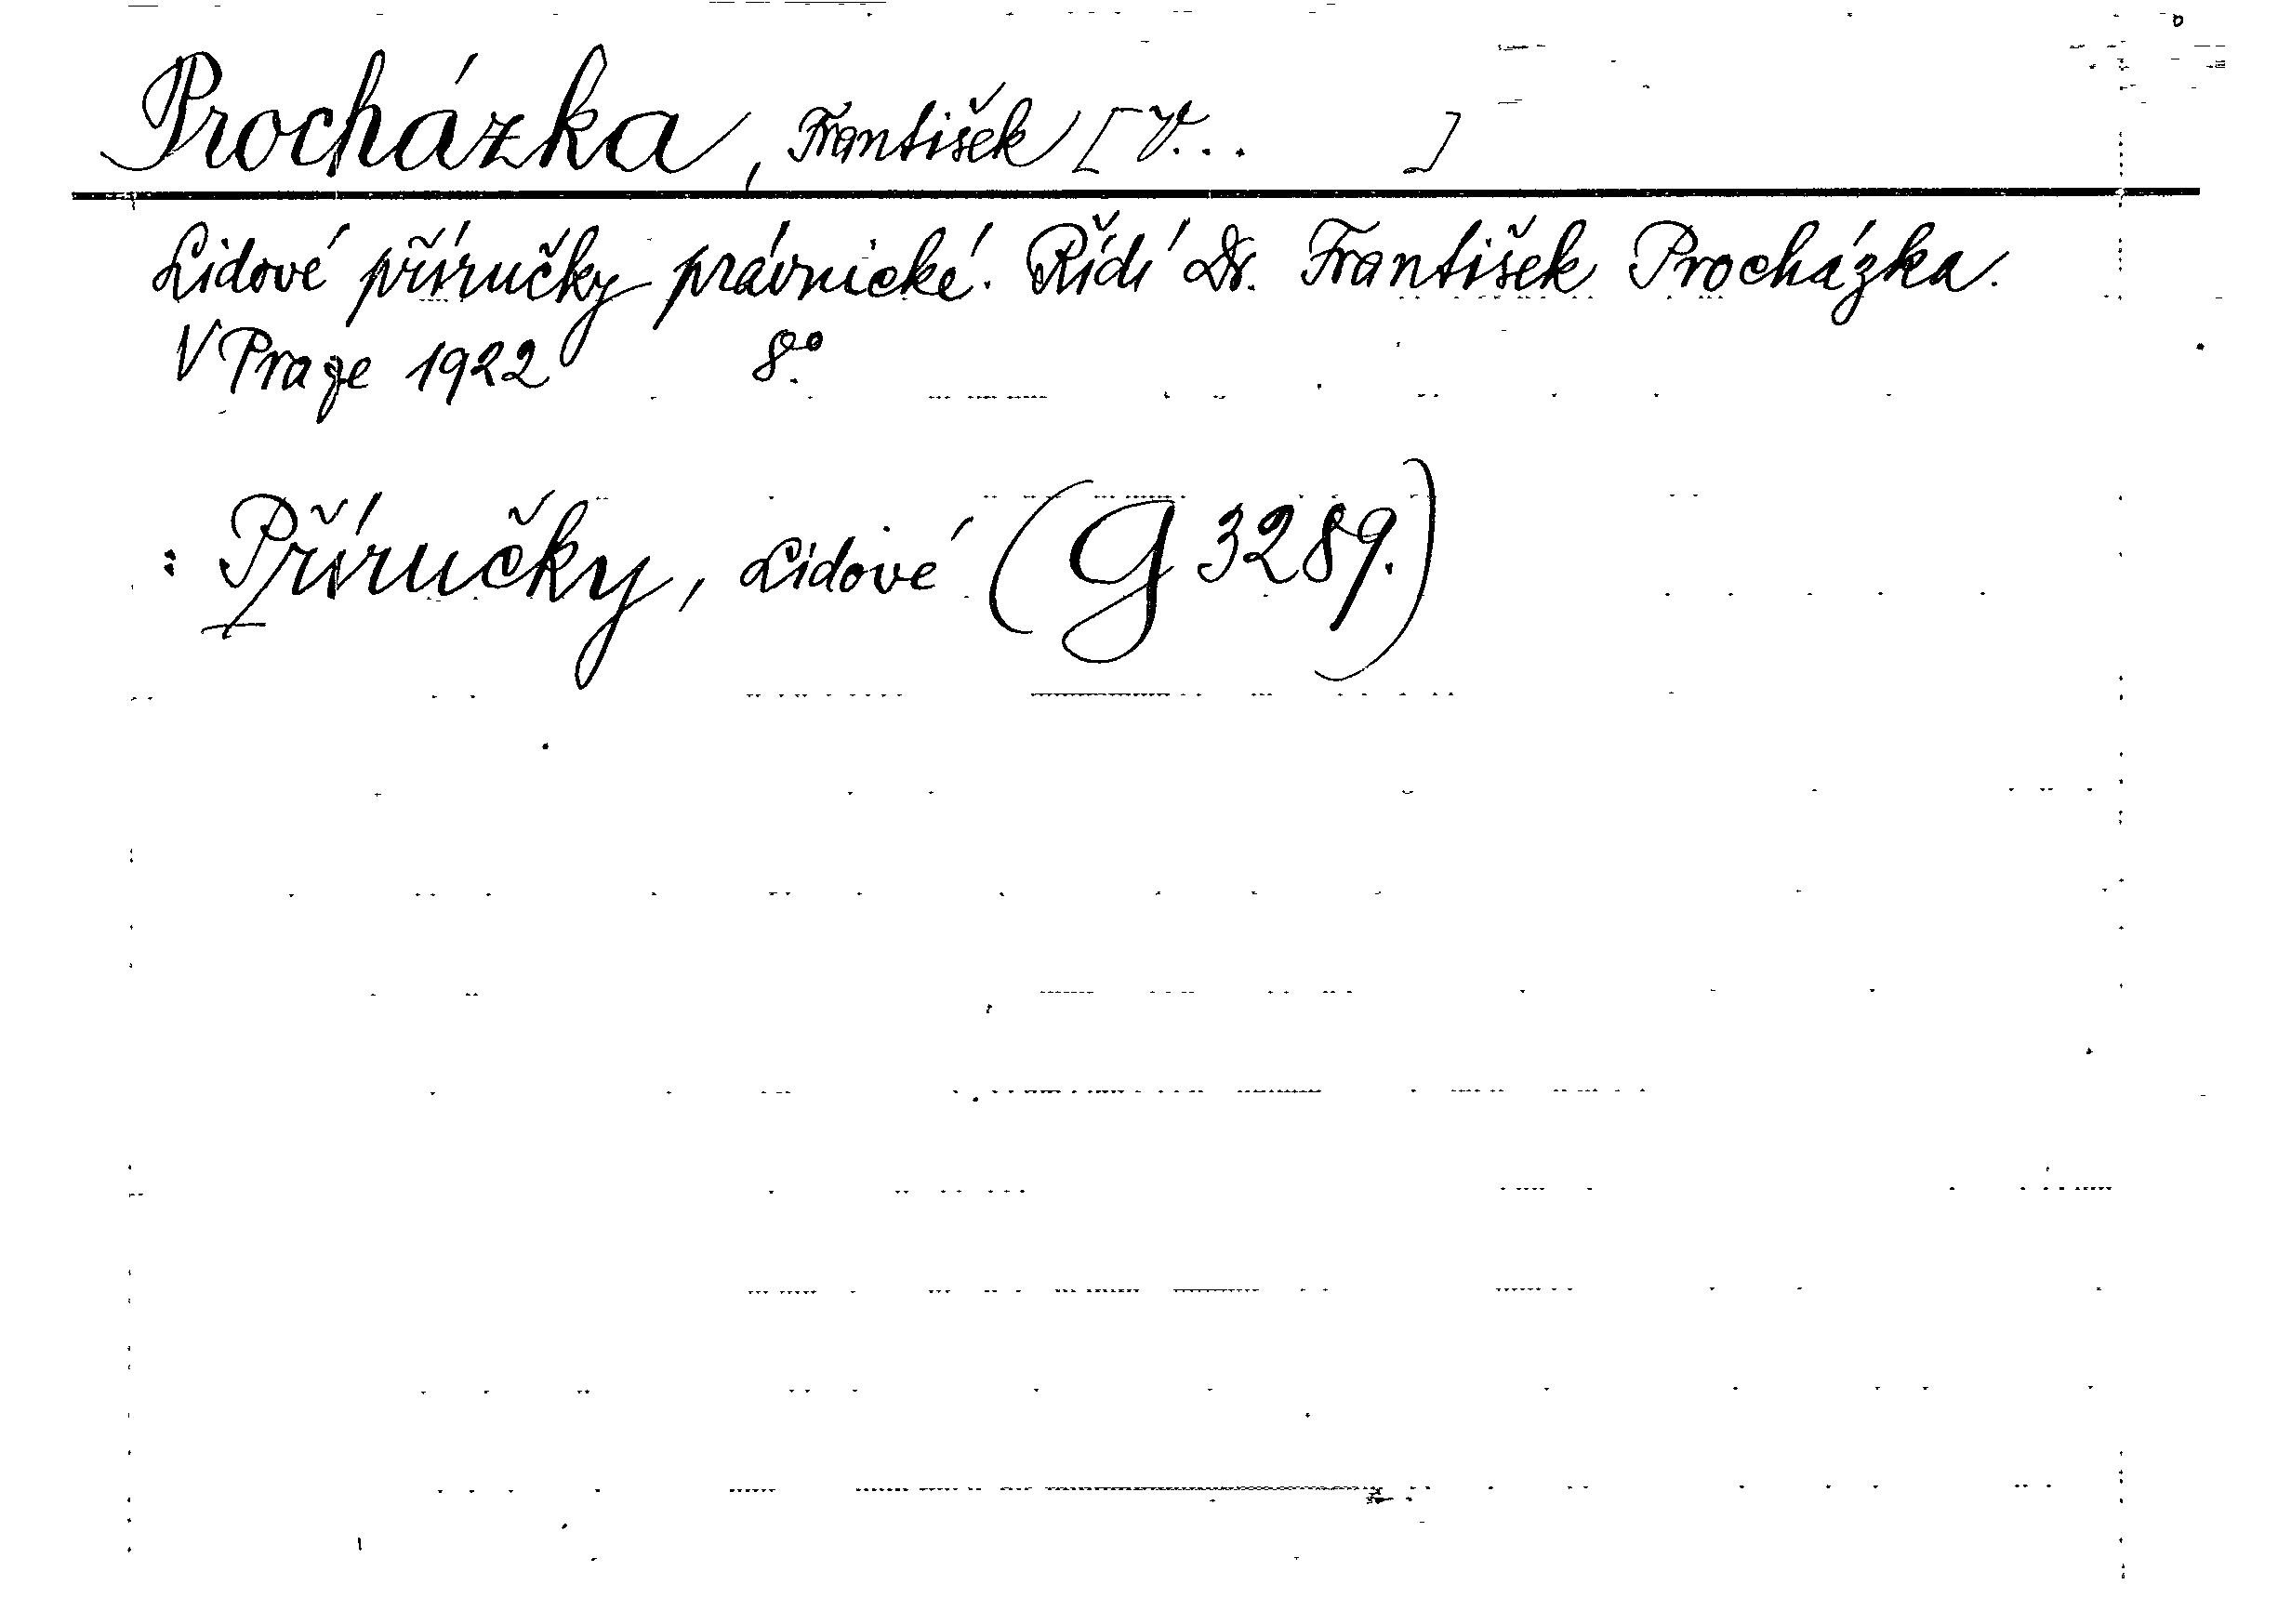 Procházka, František [V... ]
Lidové příručky právnické. Řídí Dr. František Procházka.
V Praze 1922 8°.
: Příručky, Lidové (G 3289.)